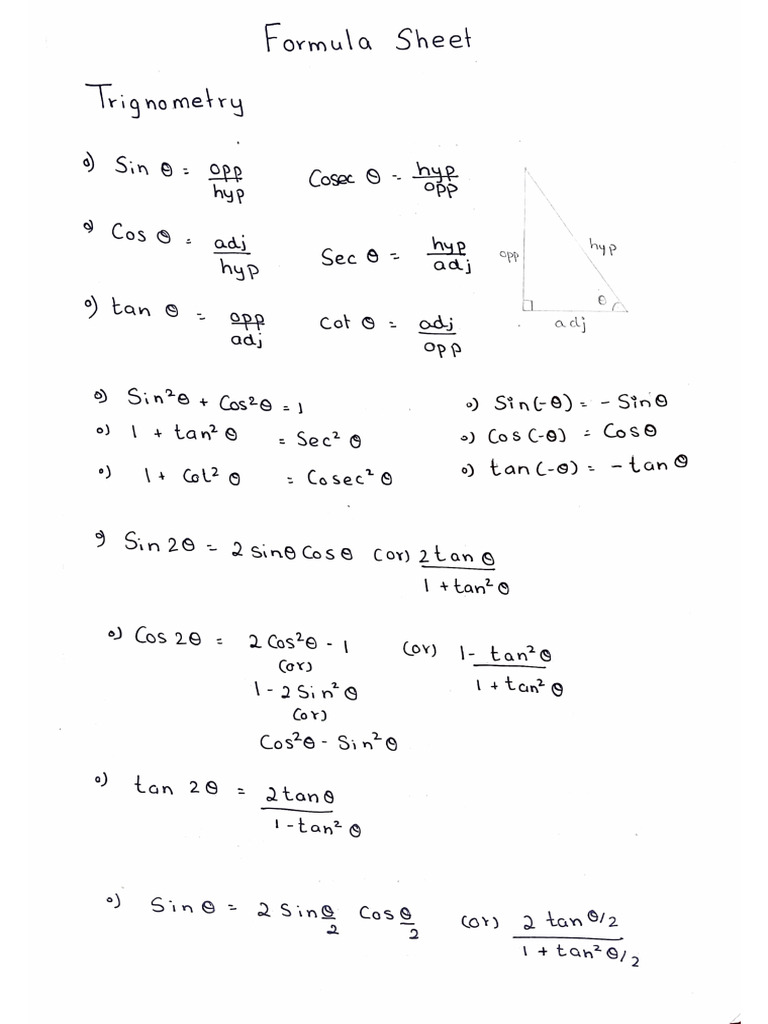 Formula Sheet
Trignometry
o) Sin θ = opp/hyp    Cosec θ = hyp/opp
o) Cos θ = adj/hyp    Sec θ = hyp/adj
o) tan θ = opp/adj    Cot θ = adj/opp
opp
hyp
θ
adj
o) Sin²θ + Cos²θ = 1    o) Sin(-θ) = - Sinθ
o) 1 + tan²θ = Sec²θ    o) Cos(-θ) = Cosθ
o) 1 + Cot²θ = Cosec²θ    o) tan(-θ) = - tanθ
o) Sin 2θ = 2 sinθ Cosθ (or) 2 tan θ / 1 + tan²θ
o) Cos 2θ = 2 Cos²θ - 1    (or) 1 - tan²θ / 1 + tan²θ
(or)
1 - 2 Sin²θ
(or)
Cos²θ - Sin²θ
o) tan 2θ = 2 tanθ / 1 - tan²θ
o) Sin θ = 2 Sin θ/2 Cos θ/2    (or) 2 tan θ/2 / 1 + tan² θ/2